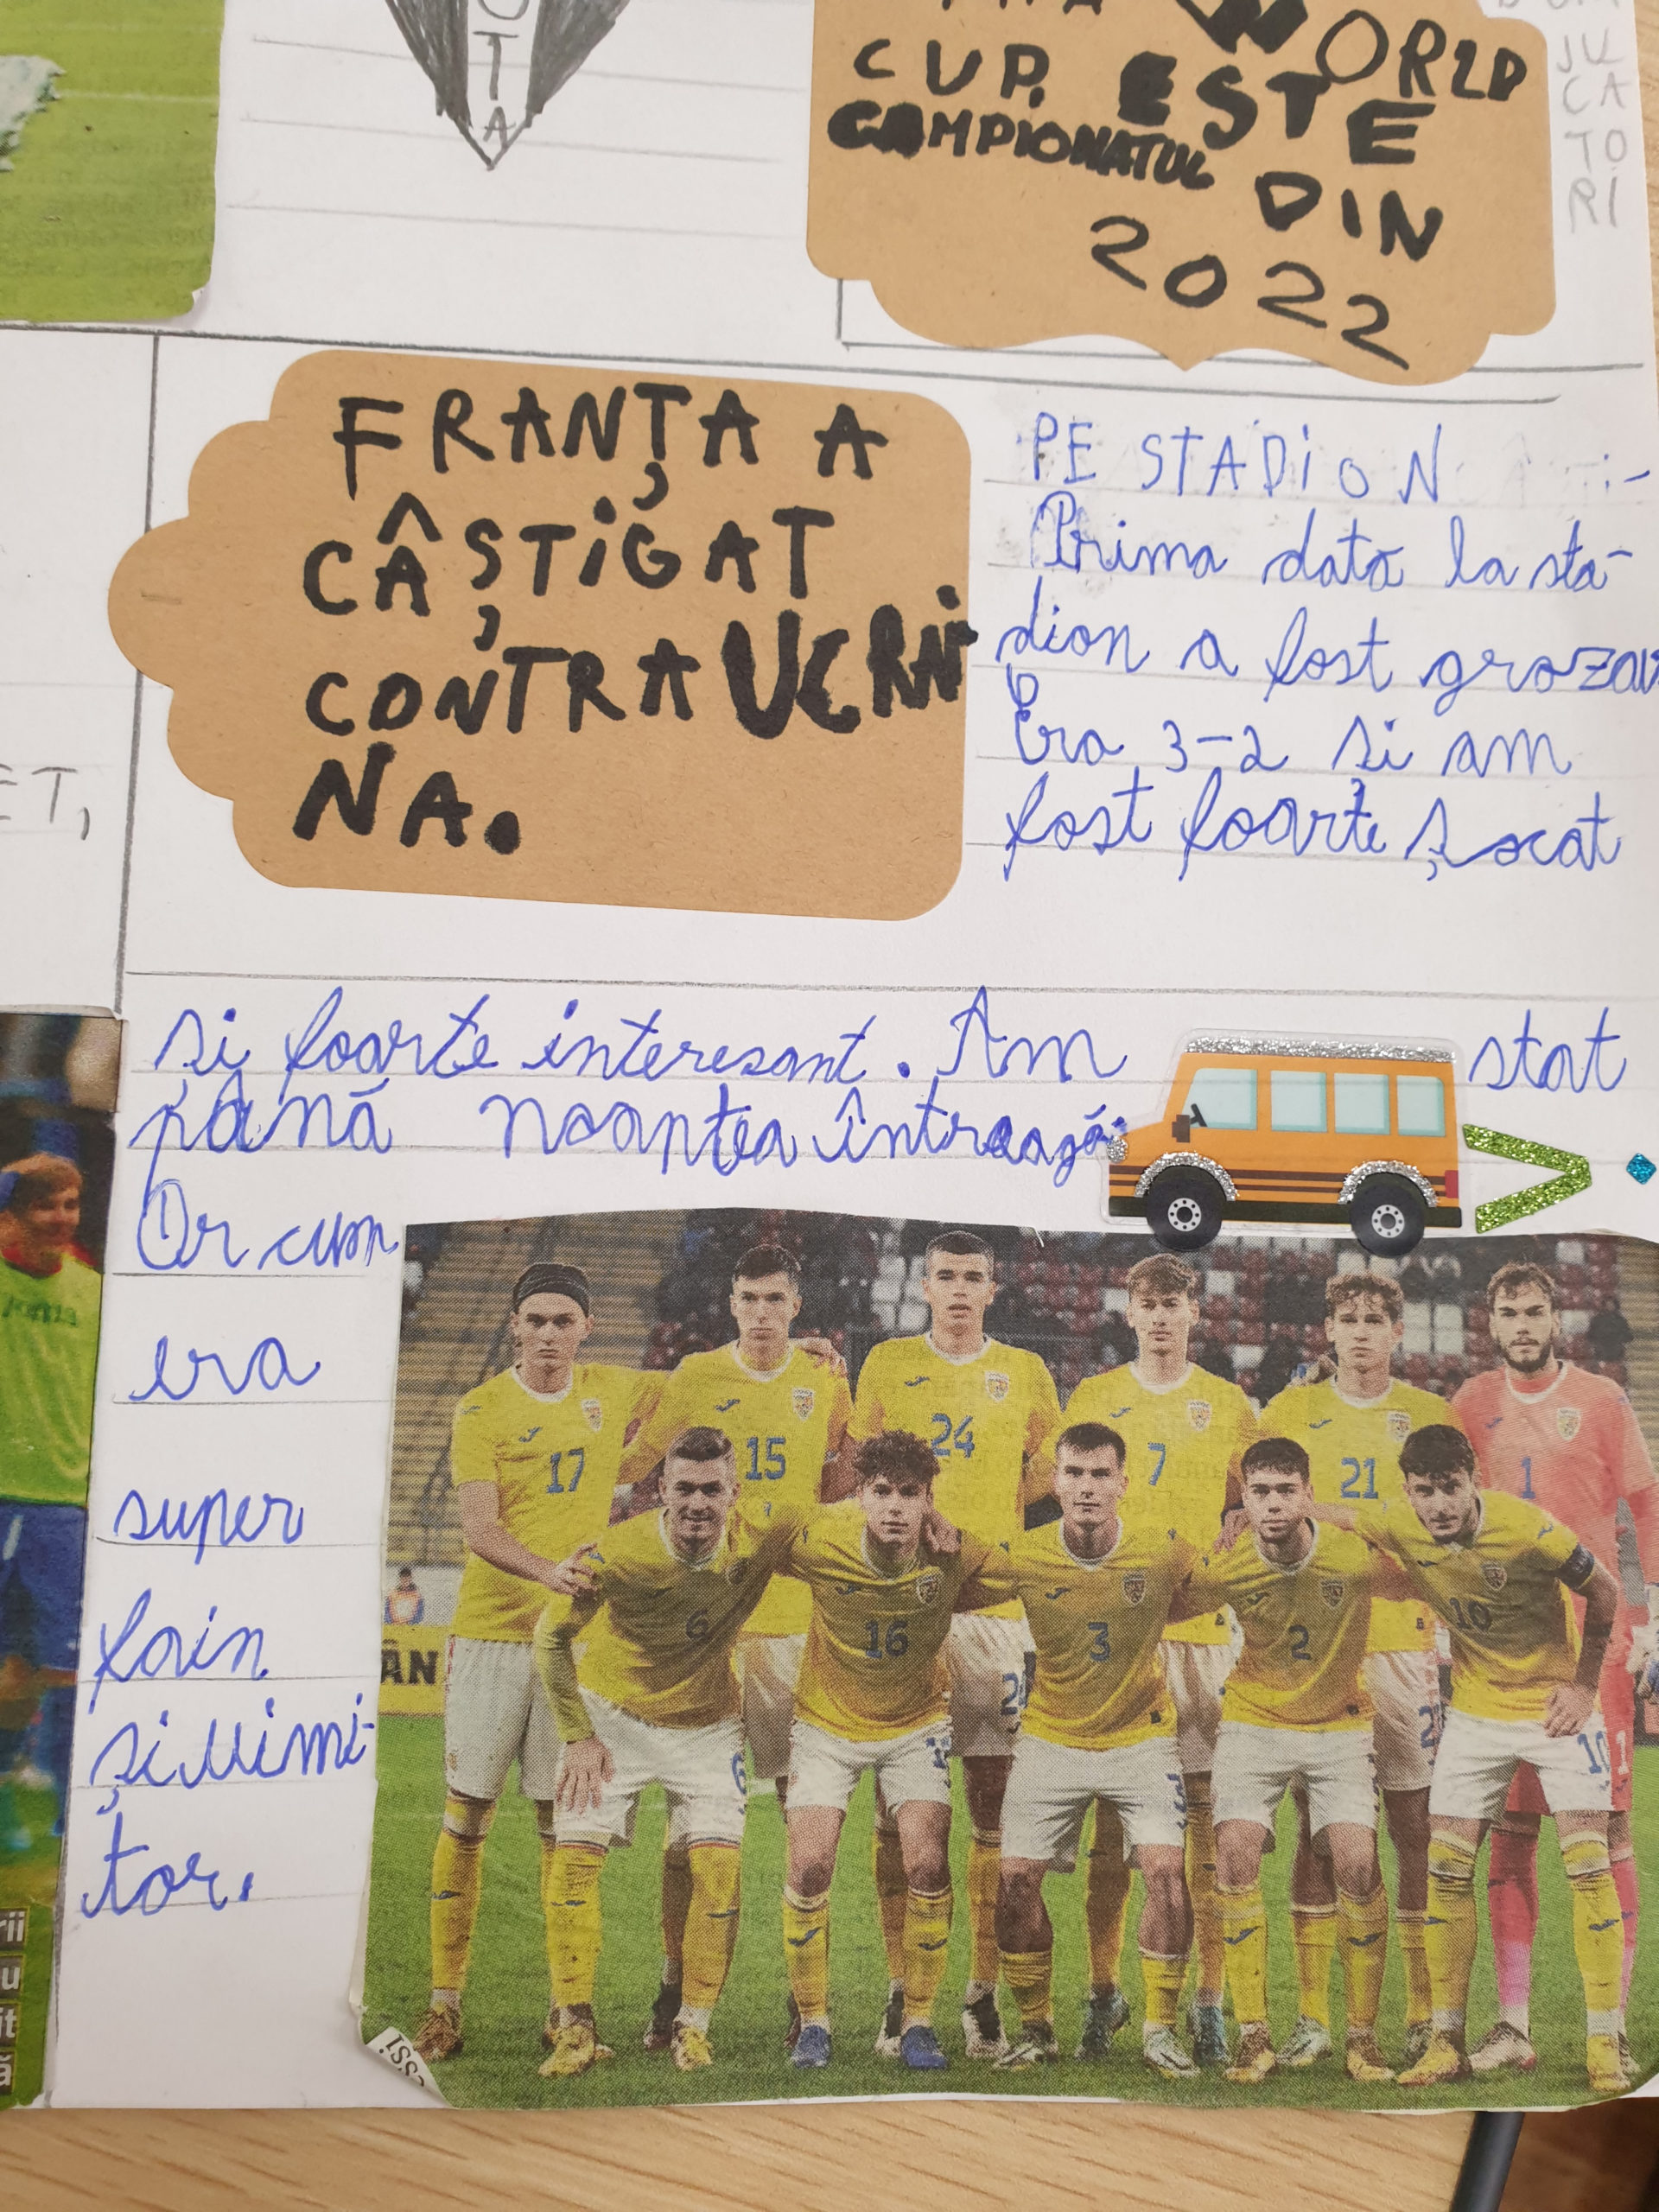 O
T
A
WORLD
CUP. ESTE
CAMPIONATUL
DIN
2022
JU
CA
TO
RI
FRANȚA A
CÂȘTIGAT
CONTRA UCRAI
NA.
ET,
PE STADION
Prima dată la sta-
dion a fost grozav
Era 3-2 și am
fost foarte șocat
și foarte interesant. Am stat
până noaptea întreagă.
Or cum
era
super
fain
și uimi-
tor.
17
15
24
7
21
1
6
16
3
2
10
ÂN
rii
u
it
ă